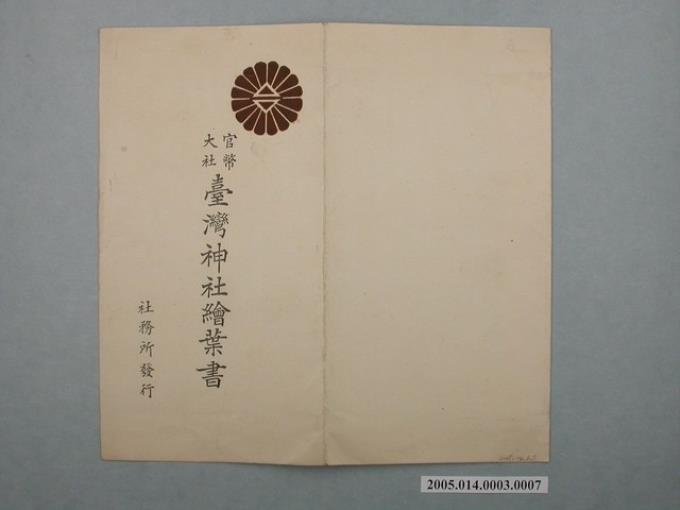 官幣
大社
臺灣神社繪葉書
社務所發行
2005.014.0003.0007